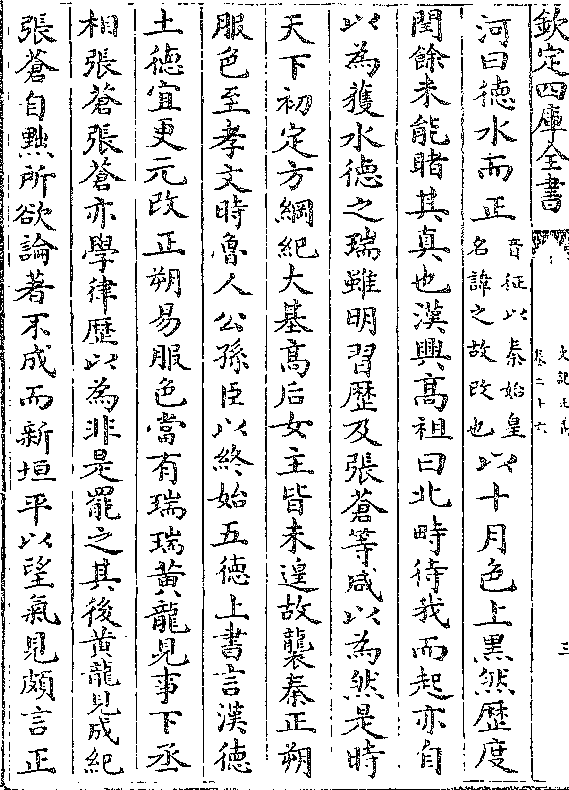 欽定四庫全書
史記正義
卷二十六
三
河曰德水而正音征以秦始皇名諱之故改也以十月色上黒然歴度
閏餘未能睹其真也漢興高祖曰北畤待我而起亦自
以為獲水德之瑞雖明習歴及張蒼等咸以為然是時
天下初定方綱紀大基高后女主皆未遑故襲秦正朔
服色至孝文時魯人公孫臣以終始五德上書言漢德
土德宜更元改正朔易服色當有瑞瑞黄龍見事下丞
相張蒼張蒼亦學律歴以為非是罷之其後黄龍見成紀
張蒼自黜所欲論著不成而新垣平以望氣見頗言正